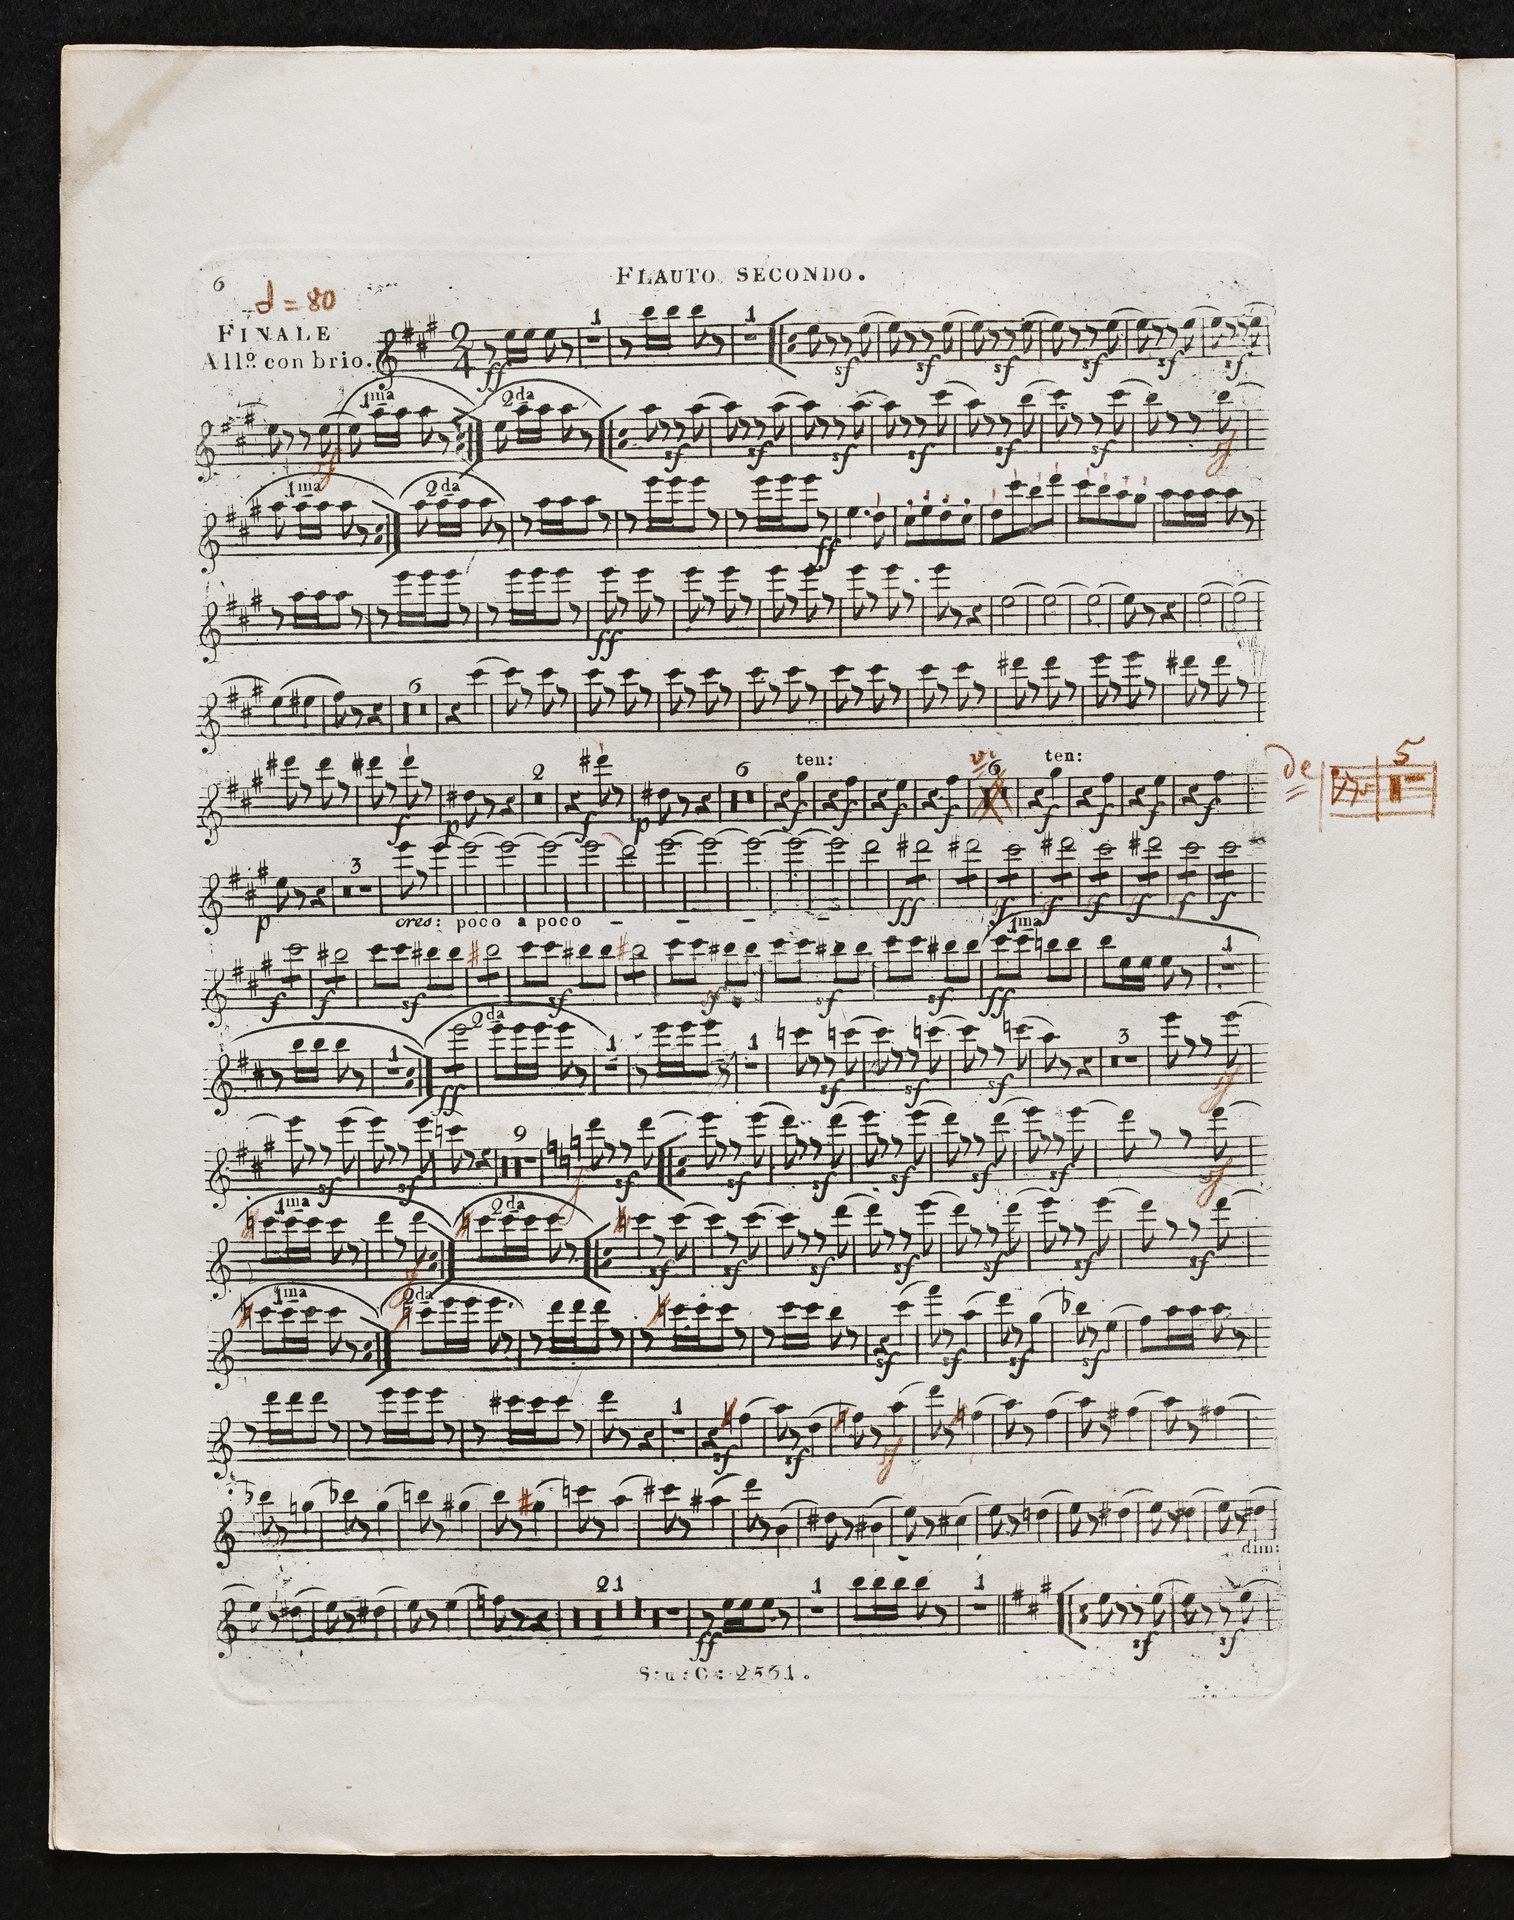 6
FLAUTO SECONDO.
d = 80
FINALE
All.º con brio.
2
4
1
1
ff
sf
sf
sf
sf
sf
sf
1ma
2da
sf
sf
sf
sf
sf
sf
sf
sf
1ma
2da
ff
ff
6
2
6
ten:
vi
6
ten:
de
5
f
p
f
p
f
f
f
f
f
f
f
f
3
p
cres: poco a poco
ff
sf
sf
sf
sf
f
f
1ma
1
f
f
sf
sf
sf
sf
sf
ff
1
2da
1
1
3
ff
sf
sf
sf
sf
9
sf
sf
f
sf
sf
sf
sf
sf
sf
sf
1ma
2da
sf
sf
sf
sf
sf
sf
sf
sf
1ma
2da
sf
sf
sf
sf
1
sf
sf
sf
dim:
21
1
1
ff
sf
sf
S: u: C: 2531.